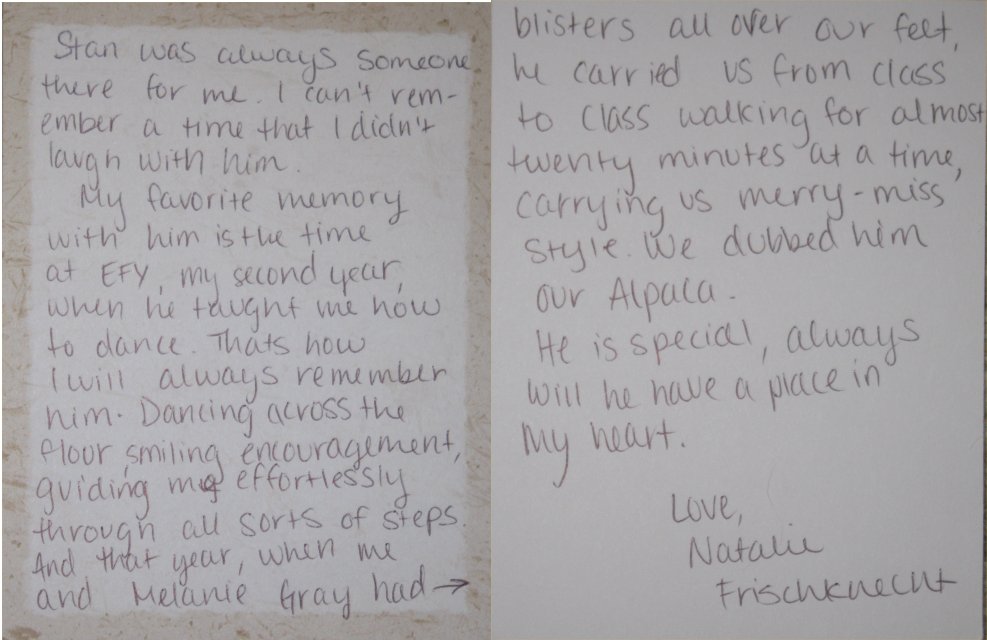 Stan was always someone
there for me. I can't rem-
ember a time that I didn't
laugh with him.
My favorite memory
with him is the time
at EFY, my second year,
when he taught me how
to dance. Thats how
I will always remember
him. Dancing across the
floor, smiling encouragement,
guiding me effortlessly
through all sorts of steps.
And that year, when me
and Melanie Gray had →
blisters all over our feet,
he carried us from class
to class walking for almost
twenty minutes at a time,
carrying us merry-miss
style. We dubbed him
our Alpaca.
He is special, always
will he have a place in
my heart.
Love,
Natalie
Frischknecht